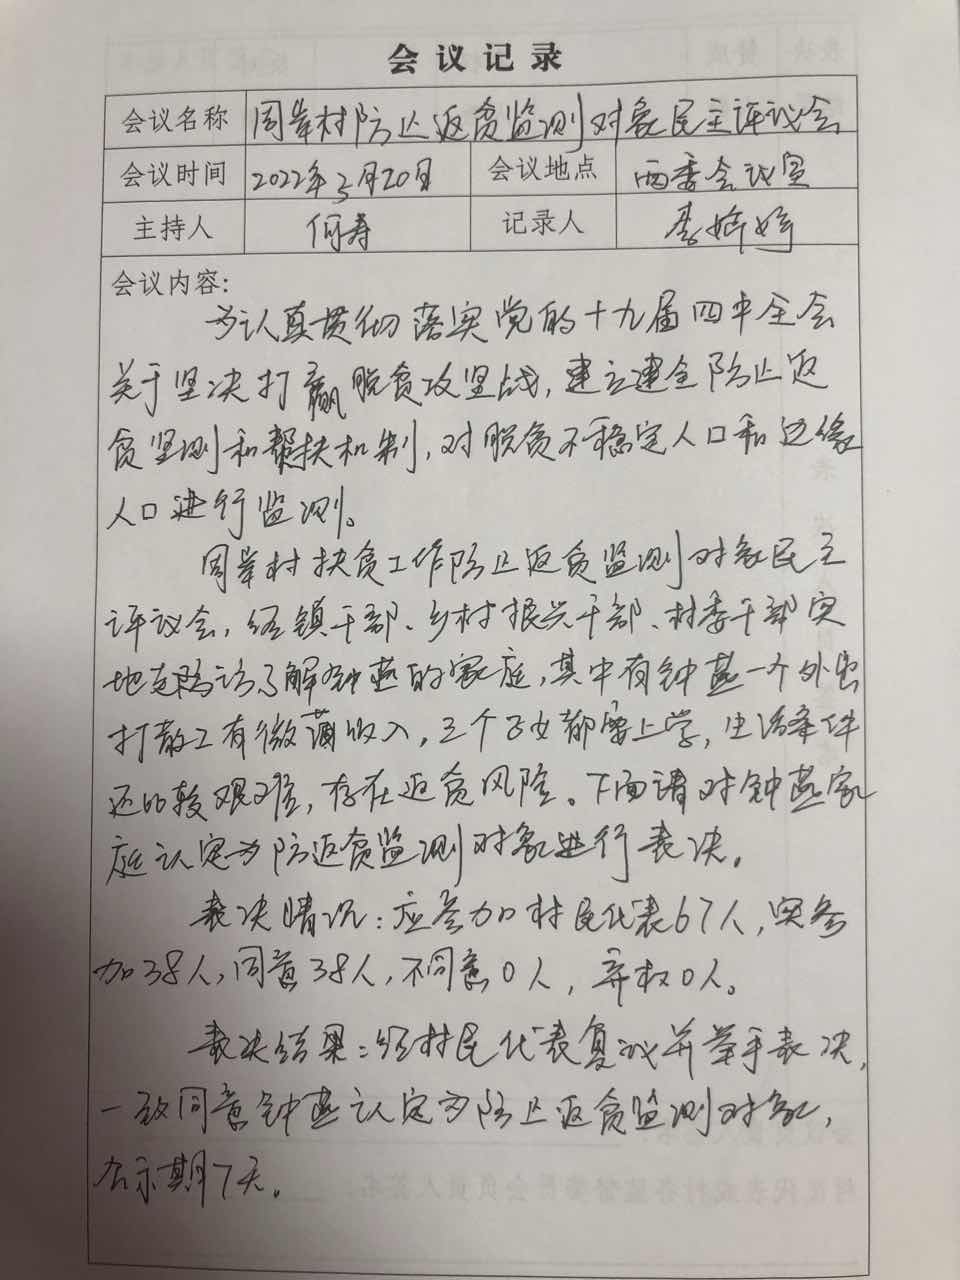 会议记录
会议名称 周峯村防止返贫监测对象民主评议会
会议时间 2022年3月20日 会议地点 两委会议室
主持人 何寿 记录人 李婷婷
会议内容:
为认真贯彻落实党的十九届四中全会
关于坚决打赢脱贫攻坚战,建立建全防止返
贫坚测和帮扶机制,对脱贫不稳定人口和边缘
人口进行监测。
周峯村扶贫工作防止返贫监测对象民主
评议会,经镇干部、乡村振兴干部、村委干部实
地走访了解钟燕的家庭,其中有钟燕一个外出
打散工有微薄收入,三个子女都要上学,生活条件
还比较艰难,存在返贫风险。下面请对钟燕家
庭认定为防返贫监测对象进行表决。
表决情况:应参加村民代表67人,实参
加38人,同意38人,不同意0人,弃权0人。
表决结果:经村民代表复议并举手表决,
一致同意钟燕认定为防止返贫监测对象,
公示期7天。